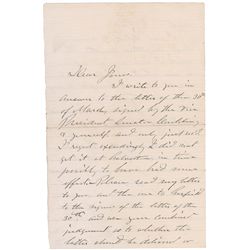 Dear Jones.
I write to you in
answer to the letter of the 30th
of March, signed by the Vice
President Senator Conkling
& yourself and only just rec'd
I regret exceedingly I did not
get it at Galveston in time
possibly to have had some
effect. Please read my letter
to you and the one to
to the signers of the letter of the
30th and use your combined
judgment as to whether the
letter should be delivered or